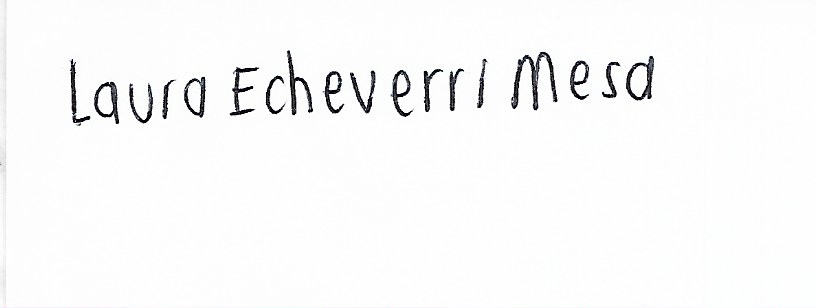 Laura Echeverri Mesa